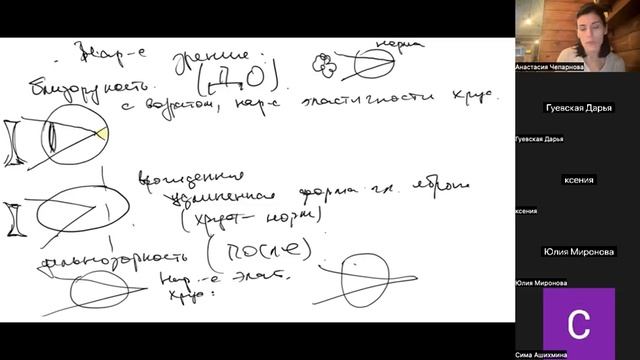 Нар-е зрение:
норма
близорукость. (ДО)
с возрастом, нар-е эластичности хрус.
врожденная
удлиненная форма гл. яблока
(хруст- норм)
дальнозоркость (ПОСЛЕ)
Нар.-е эласт.
хрус:
Анастасия Чепарнова
Гуевская Дарья
Гуевская Дарья
ксения
ксения
Юлия Миронова
Юлия Миронова
С
Сима Ашихмина